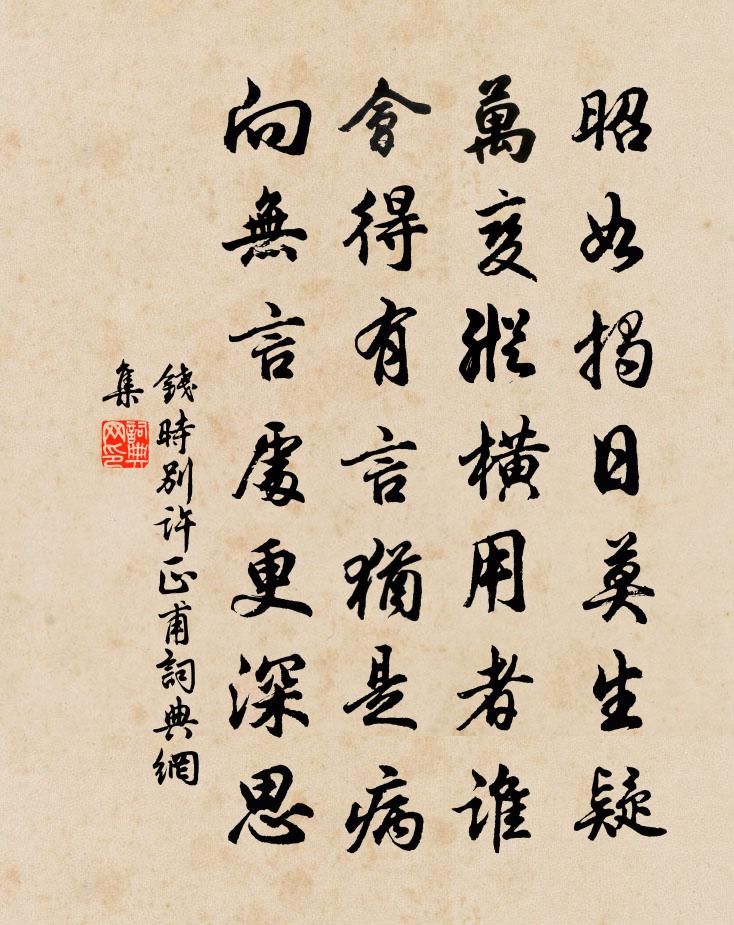 昭如揭日莫生疑
萬變縱橫用者誰
會得有言猶是病
向無言處更深思
錢時別許正甫詞典網
集
詞典
网印